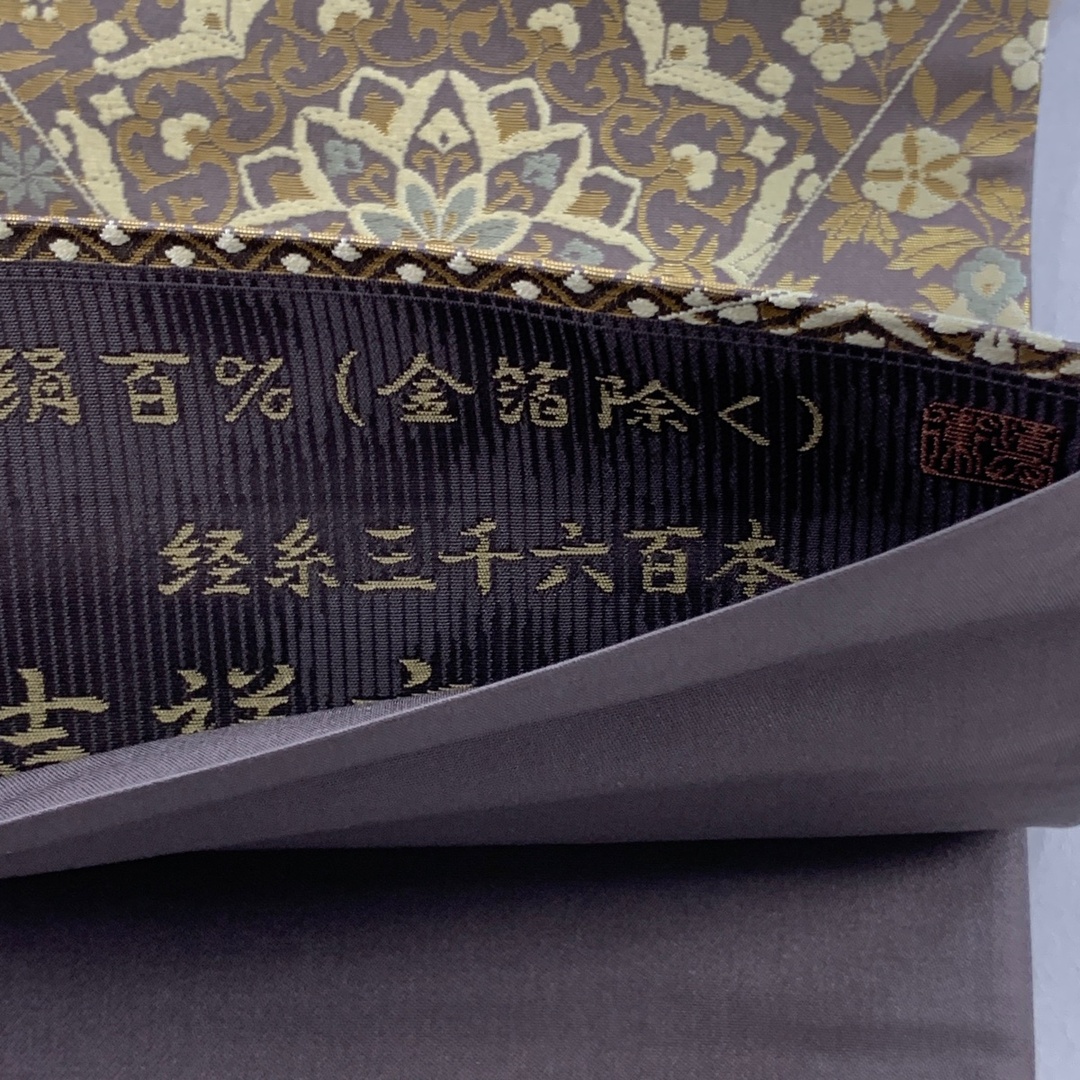 絹百%(金箔除く)
経糸三千六百本
吉祥